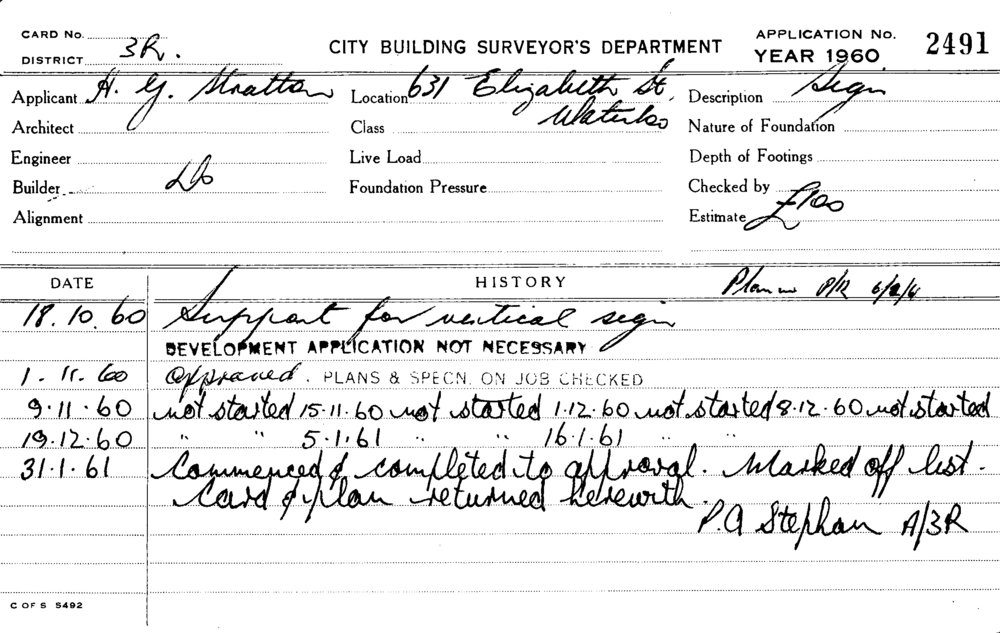 CARD No.
DISTRICT 3R.
CITY BUILDING SURVEYOR'S DEPARTMENT
APPLICATION No. 2491
YEAR 1960
Applicant H. G. Stratton Location 631 Elizabeth St. Description Sign
Waterloo
Architect Class Nature of Foundation
Engineer Live Load Depth of Footings
Builder Do Foundation Pressure Checked by
Alignment Estimate £100
DATE HISTORY Plan
18.10.60 Support for vertical sign
DEVELOPMENT APPLICATION NOT NECESSARY
1.11.60 Approved. PLANS & SPECN. ON JOB CHECKED
9.11.60 not started 15.11.60 not started 1.12.60 not started 8.12.60 not started
19.12.60 " " 5.1.61 " " 16.1.61 " "
31.1.61 Commenced & completed to approval. Marked off list.
Card & plan returned herewith.
P.A Stephan A/3R
C OF S S492